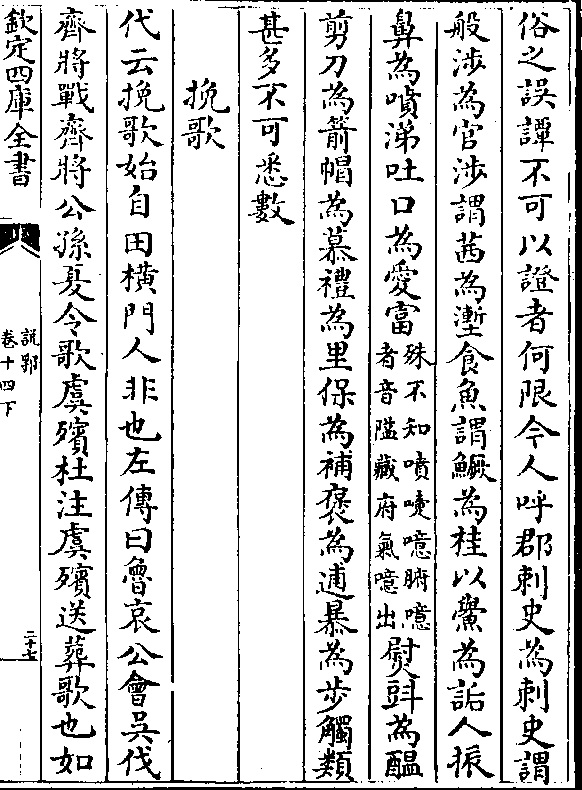 俗之誤譚不可以證者何限今人呼郡刺史為刺史謂
般涉為官涉謂茜為塹食魚謂鱖為桂以鱟為詬人振
鼻為噴涕吐口為愛富殊不知噴嚏噫腑噫者音隘藏府氣噫出熨㪷為醖
剪刀為箭帽為慕禮為里保為補褒為逋暴為步觸類
甚多不可悉數
挽歌
代云挽歌始自田橫門人非也左傳曰魯哀公會吳伐
齊將戰齊將公孫夏令歌虞殯杜注虞殯送葬歌也如
欽定四庫全書
說郛
卷十四下
二十七